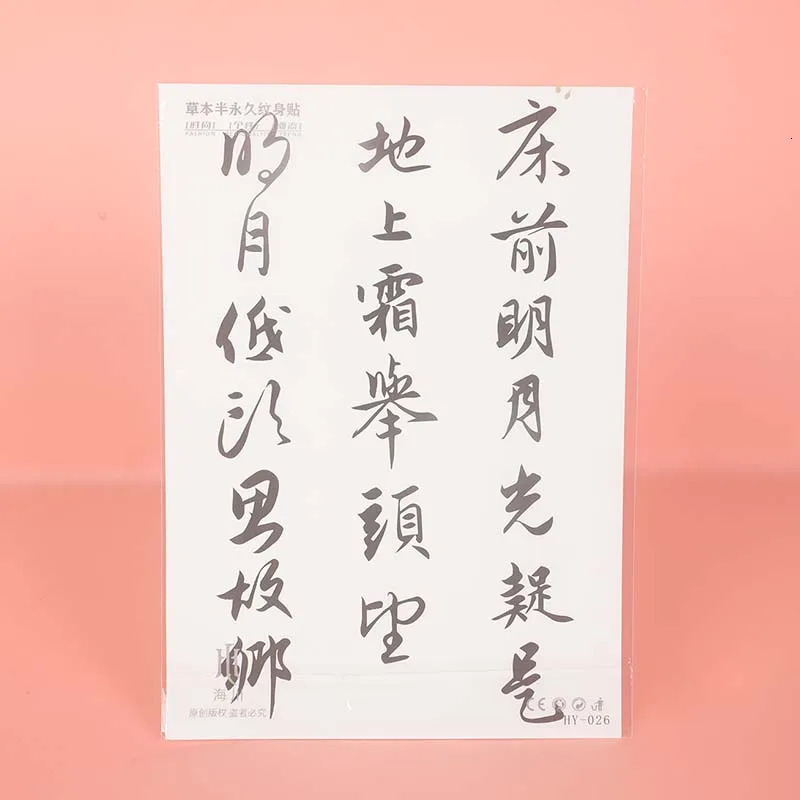 草本半永久纹身贴
床前明月光疑是
地上霜舉頭望
明月低头思故鄉
海川
原创版权 盗者必究
CE
HY-026